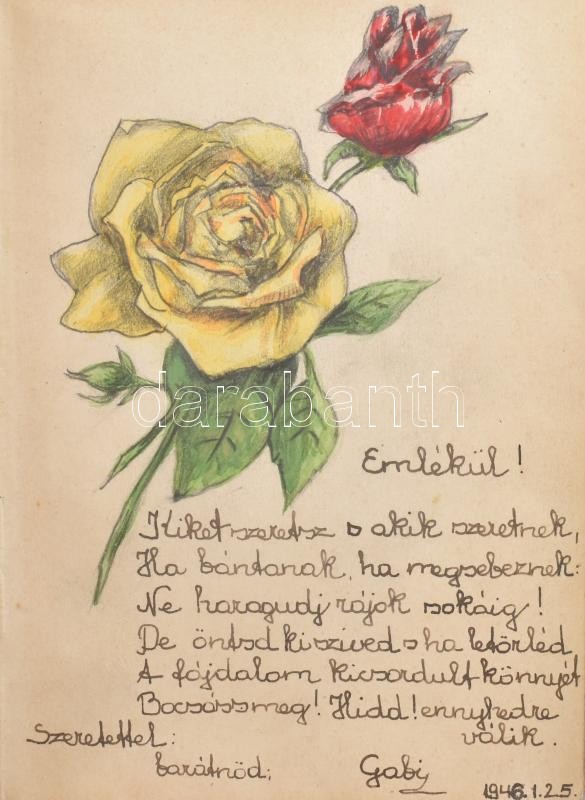 darabanth
Emlékül!
Kiket szeretsz s akik szeretnek,
Ha bántanak, ha megsebeznek:
Ne haragudj rájok sokáig!
De öntsd ki szived s ha letörléd
A fájdalom kicsordult könnyét
Bocsáss meg! Hidd! ennyhedre
válik.
Szeretettel:
barátnőd;
Gabi
1946.1.25.